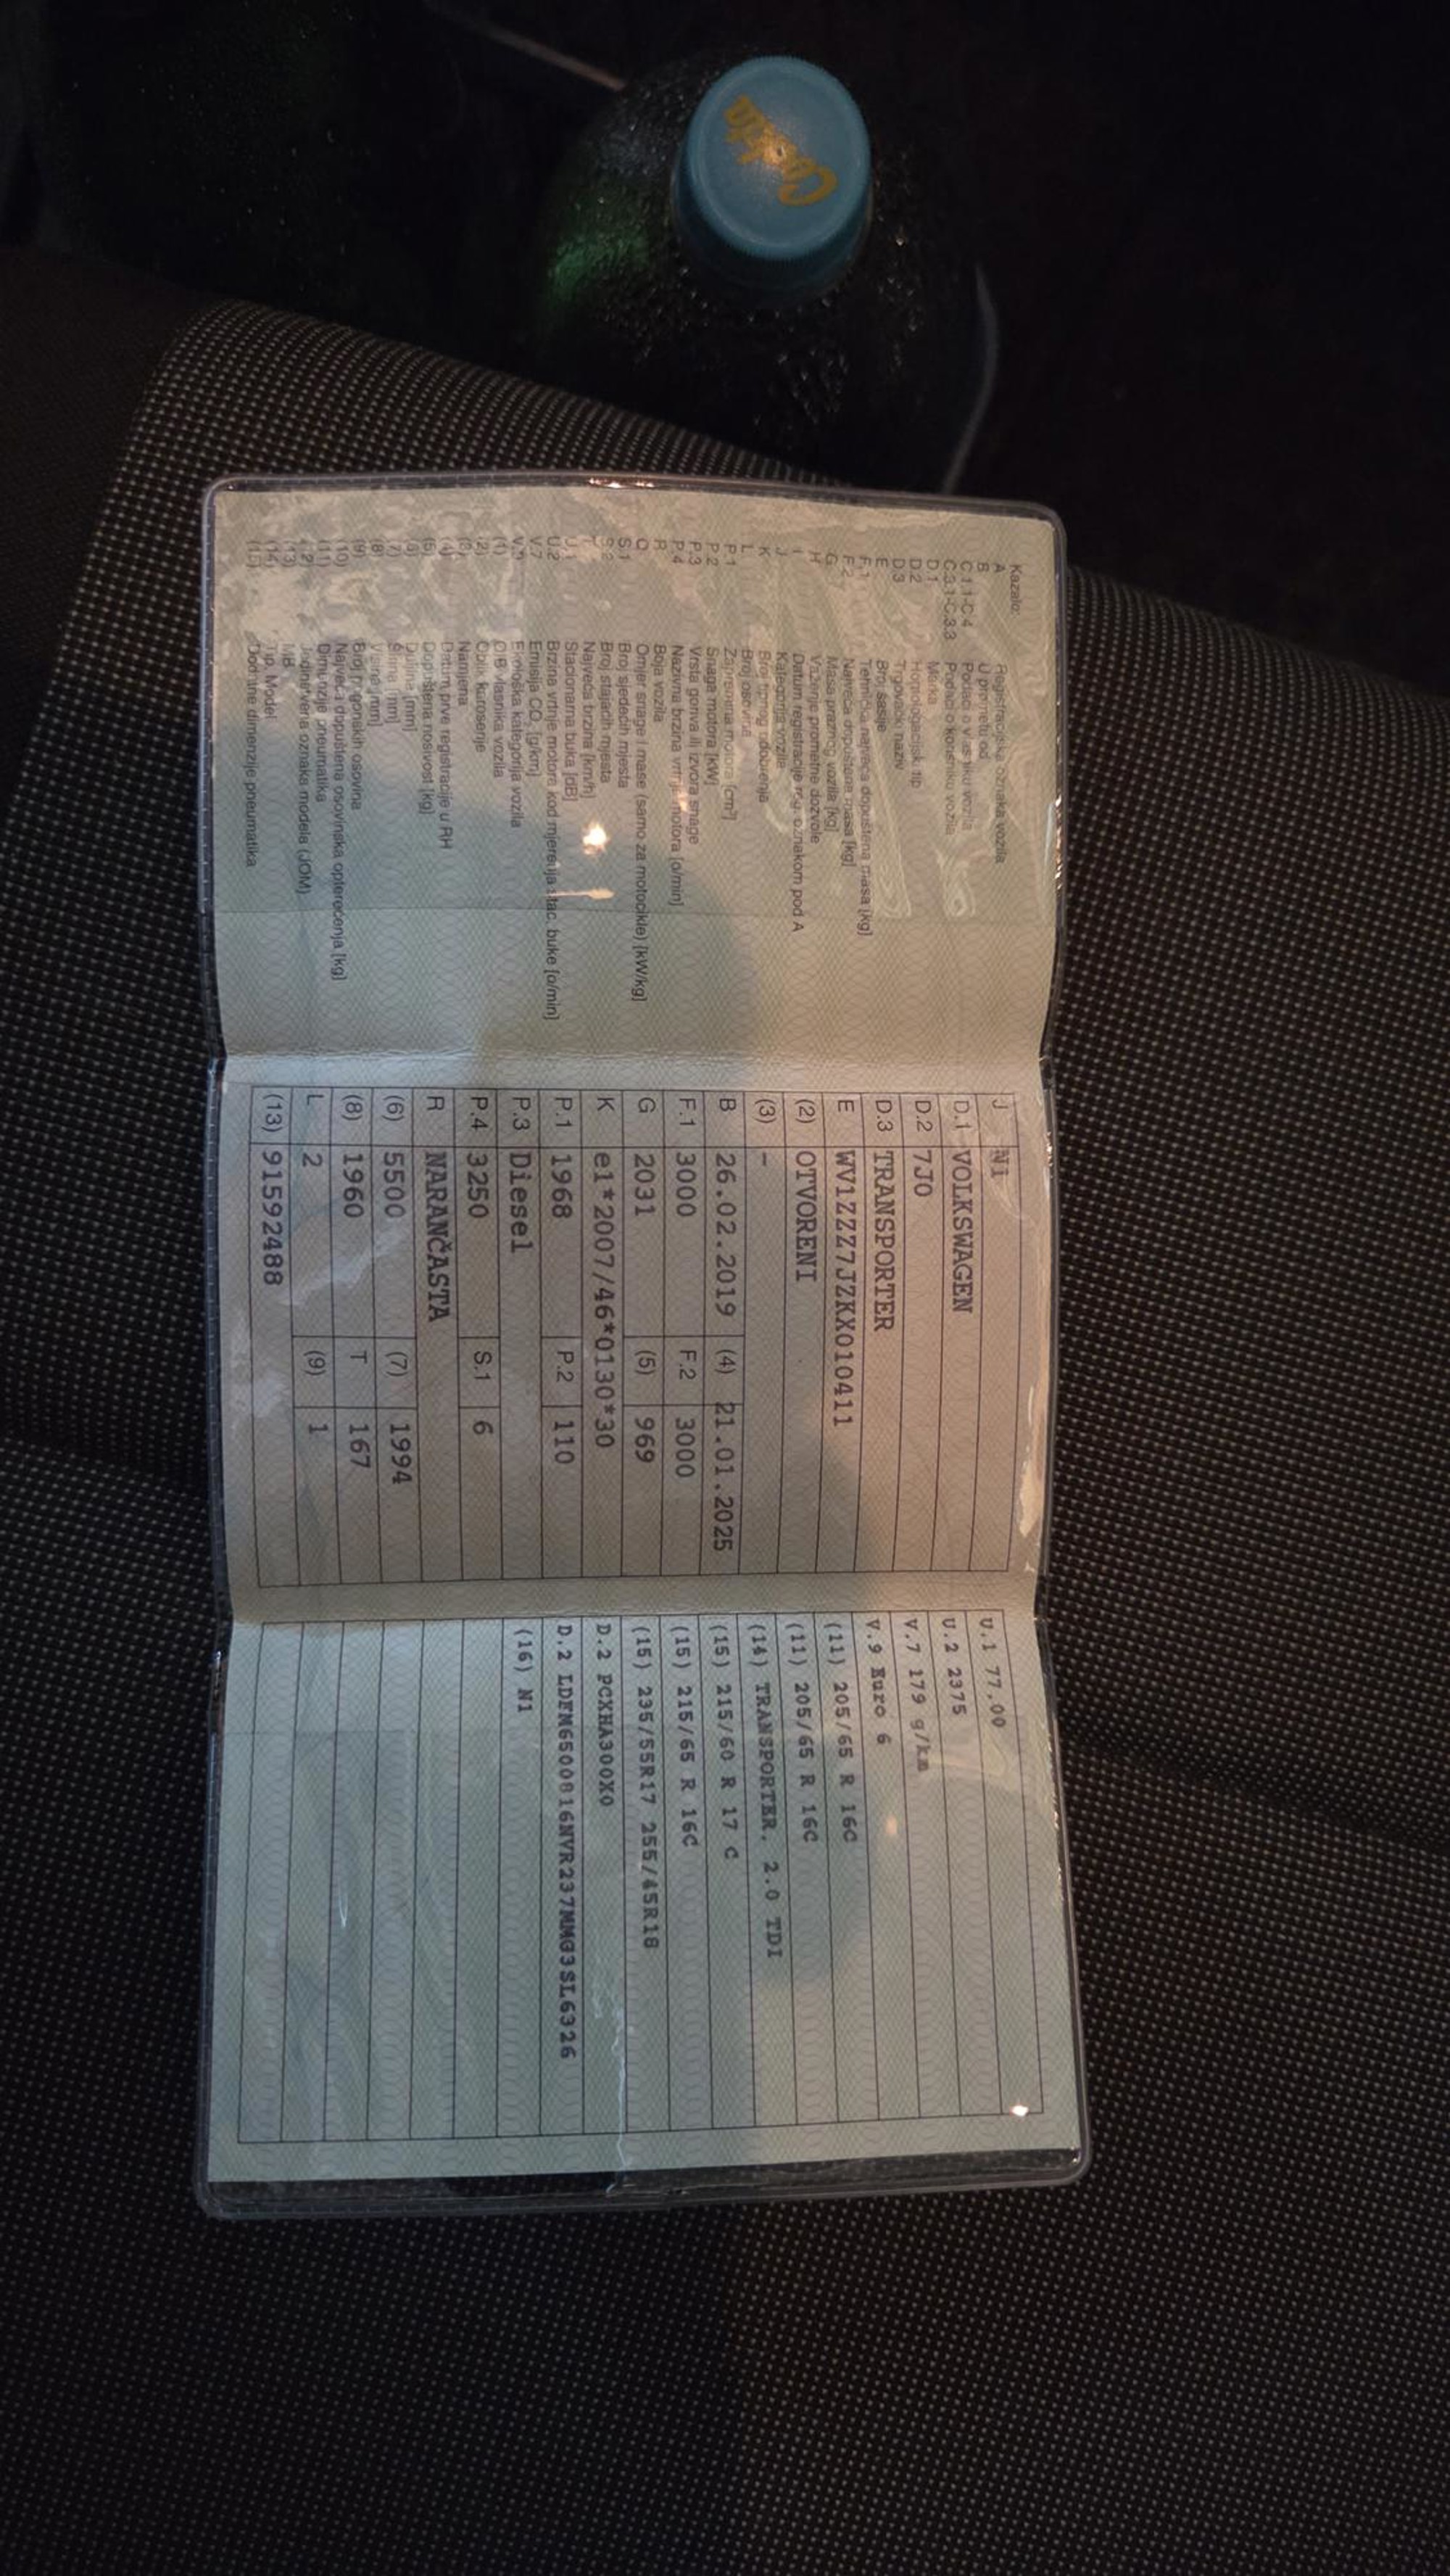 Cedevita
Kazalo:
A Registracijska oznaka vozila
B U prometu od
C.1.1-C.4 Podaci o vlasniku vozila
C.3.1-C.3.3 Podaci o korisniku vozila
D.1 Marka
D.2 Homologacijski tip
D.3 Trgovački naziv
E Broj šasije
F.1 Tehnička najveća dopuštena masa [kg]
F.2 Najveća dopuštena masa [kg]
G Masa praznog vozila [kg]
H Važenje prometne dozvole
I Datum registracije reg. oznakom pod A
J Kategorija vozila
K Broj tipnog odobrenja
L Broj osovina
P.1 Zapremina motora [cm³]
P.2 Snaga motora [kW]
P.3 Vrsta goriva ili izvora snage
P.4 Nazivna brzina vrtnje motora [o/min]
R Boja vozila
Q Omjer snage i mase (samo za motocikle) [kW/kg]
S.1 Broj sjedećih mjesta
S.2 Broj stajaćih mjesta
T Najveća brzina [km/h]
U.1 Stacionarna buka [dB]
U.2 Brzina vrtnje motora kod mjerenja stac. buke [o/min]
V.7 Emisija CO₂ [g/km]
V.9 Ekološka kategorija vozila
(1) OIB vlasnika vozila
(2) Oblik karoserije
(3) Namjena
(4) Datum prve registracije u RH
(5) Dopuštena nosivost [kg]
(6) Dužina [mm]
(7) Širina [mm]
(8) Visina [mm]
(9) Broj pogonskih osovina
(10) Najveća dopuštena osovinska opterećenja [kg]
(11) Dimenzije pneumatika
(12) Jedinstvena oznaka modela (JOM)
(13) MB
(14) Tip, Model
(15) Dodatne dimenzije pneumatika
J N1
D.1 VOLKSWAGEN
D.2 7J0
D.3 TRANSPORTER
E WV1ZZZ7JZKX010411
(2) OTVORENI
(3) -
B 26.02.2019 (4) 21.01.2025
F.1 3000 F.2 3000
G 2031 (5) 969
K e1*2007/46*0130*30
P.1 1968 P.2 110
P.3 Diesel
P.4 3250 S.1 6
R NARANČASTA
(6) 5500 (7) 1994
(8) 1960 T 167
L 2 (9) 1
(13) 91592488
U.1 77.00
U.2 2375
V.7 179 g/km
V.9 Euro 6
(11) 205/65 R 16C
(11) 205/65 R 16C
(14) TRANSPORTER. 2.0 TDI
(15) 215/60 R 17 C
(15) 215/65 R 16C
(15) 235/55R17 255/45R18
D.2 PCXHA300X0
D.2 LDFM6500816NVR237MMG3SL6326
(16) N1